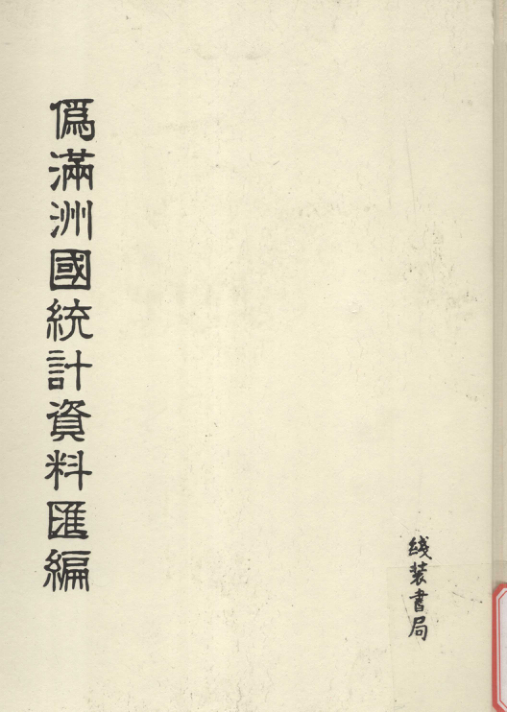 僞滿洲國統計資料匯編
綫装書局